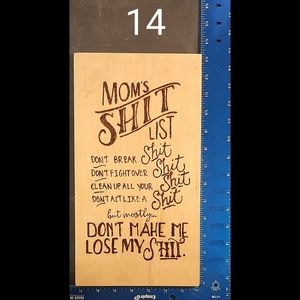 14
MOM'S
SHIT
LIST
DON'T BREAK Shit
DON'T FIGHT OVER Shit
CLEAN UP ALL YOUR Shit
DON'T ACT LIKE A Shit
but mostly...
DON'T MAKE ME
LOSE MY SHIT.
Empire